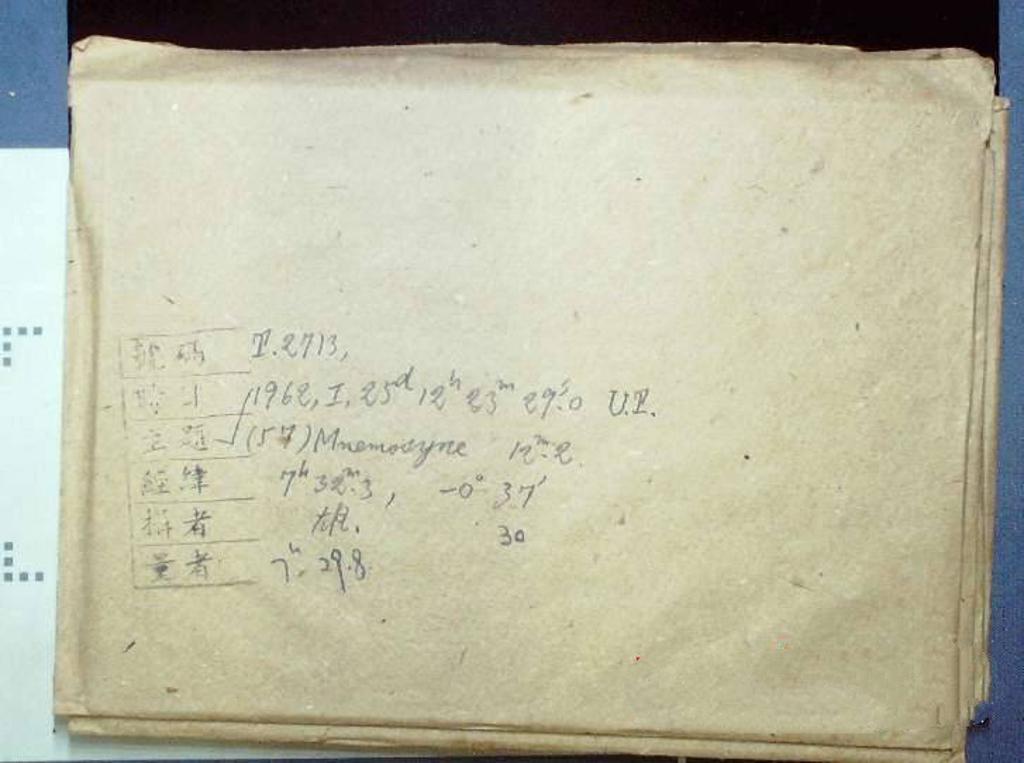 號碼 T.2713,
時刻 1962, I, 25ᵈ 12ʰ 23ᵐ 29ˢ.0 U.T.
主題 (57) Mnemosyne 12ᵐ.2
經緯 7ʰ 32ᵐ.3, -0° 37′
攝者 雄. 30
量者 7ʰ. 29.8